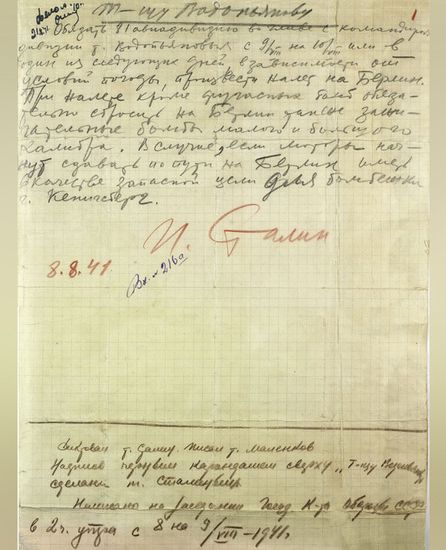 1
Т-щу Водопьянову
Обязать 81 авиадивизию во главе с командиром
дивизии т. Водопьяновым с 9/VIII на 10/VIII или в
один из следующих дней в зависимости от
условий погоды, произвести налет на Берлин.
При налете кроме фугасных бомб обяза-
тельно сбросить на Берлин также зажи-
гательные бомбы малого и большого
калибра. В случае, если моторы нач-
нут сдавать по пути на Берлин иметь
в качестве запасной цели для бомбежки
г. Кенигсберг.
И. Сталин
8.8.41
Вх. № 216а
Диктовал т. Сталин. Писал т. Маленков
Надпись черным карандашем сверху „Т-щу Водопьянову"
сделана т. Сталиным.
Написано на заседании Госуд. К-та Обороны СССР
в 2 ч. утра с 8 на 9/VIII-1941 г.